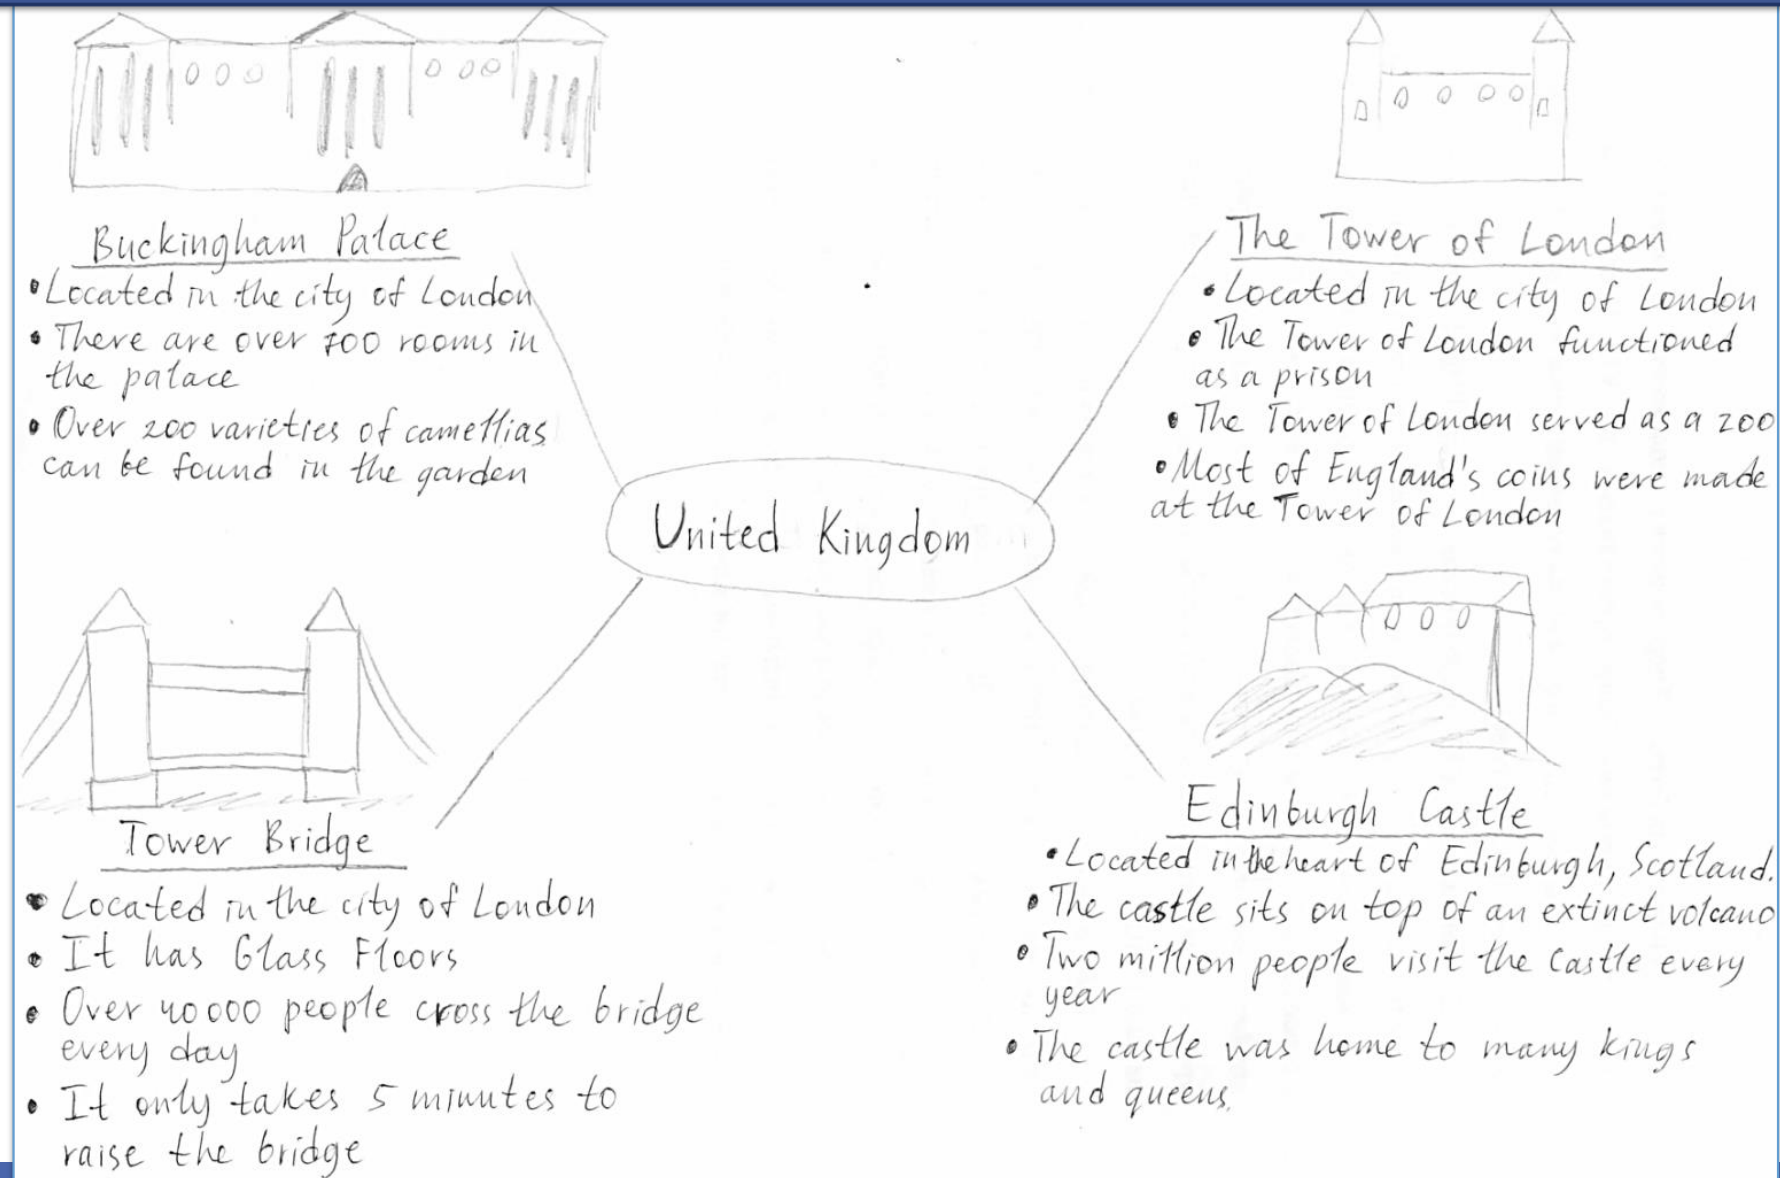 Buckingham Palace
• Located in the city of London
• There are over 700 rooms in
the palace
• Over 200 varieties of camellias
can be found in the garden
The Tower of London
• Located in the city of London
• The Tower of London functioned
as a prison
• The Tower of London served as a zoo
• Most of England's coins were made
at the Tower of London
United Kingdom
Tower Bridge
• Located in the city of London
• It has Glass Floors
• Over 40000 people cross the bridge
every day
• It only takes 5 minutes to
raise the bridge
Edinburgh Castle
• Located in the heart of Edinburgh, Scotland.
• The castle sits on top of an extinct volcano
• Two million people visit the Castle every
year
• The castle was home to many kings
and queens.